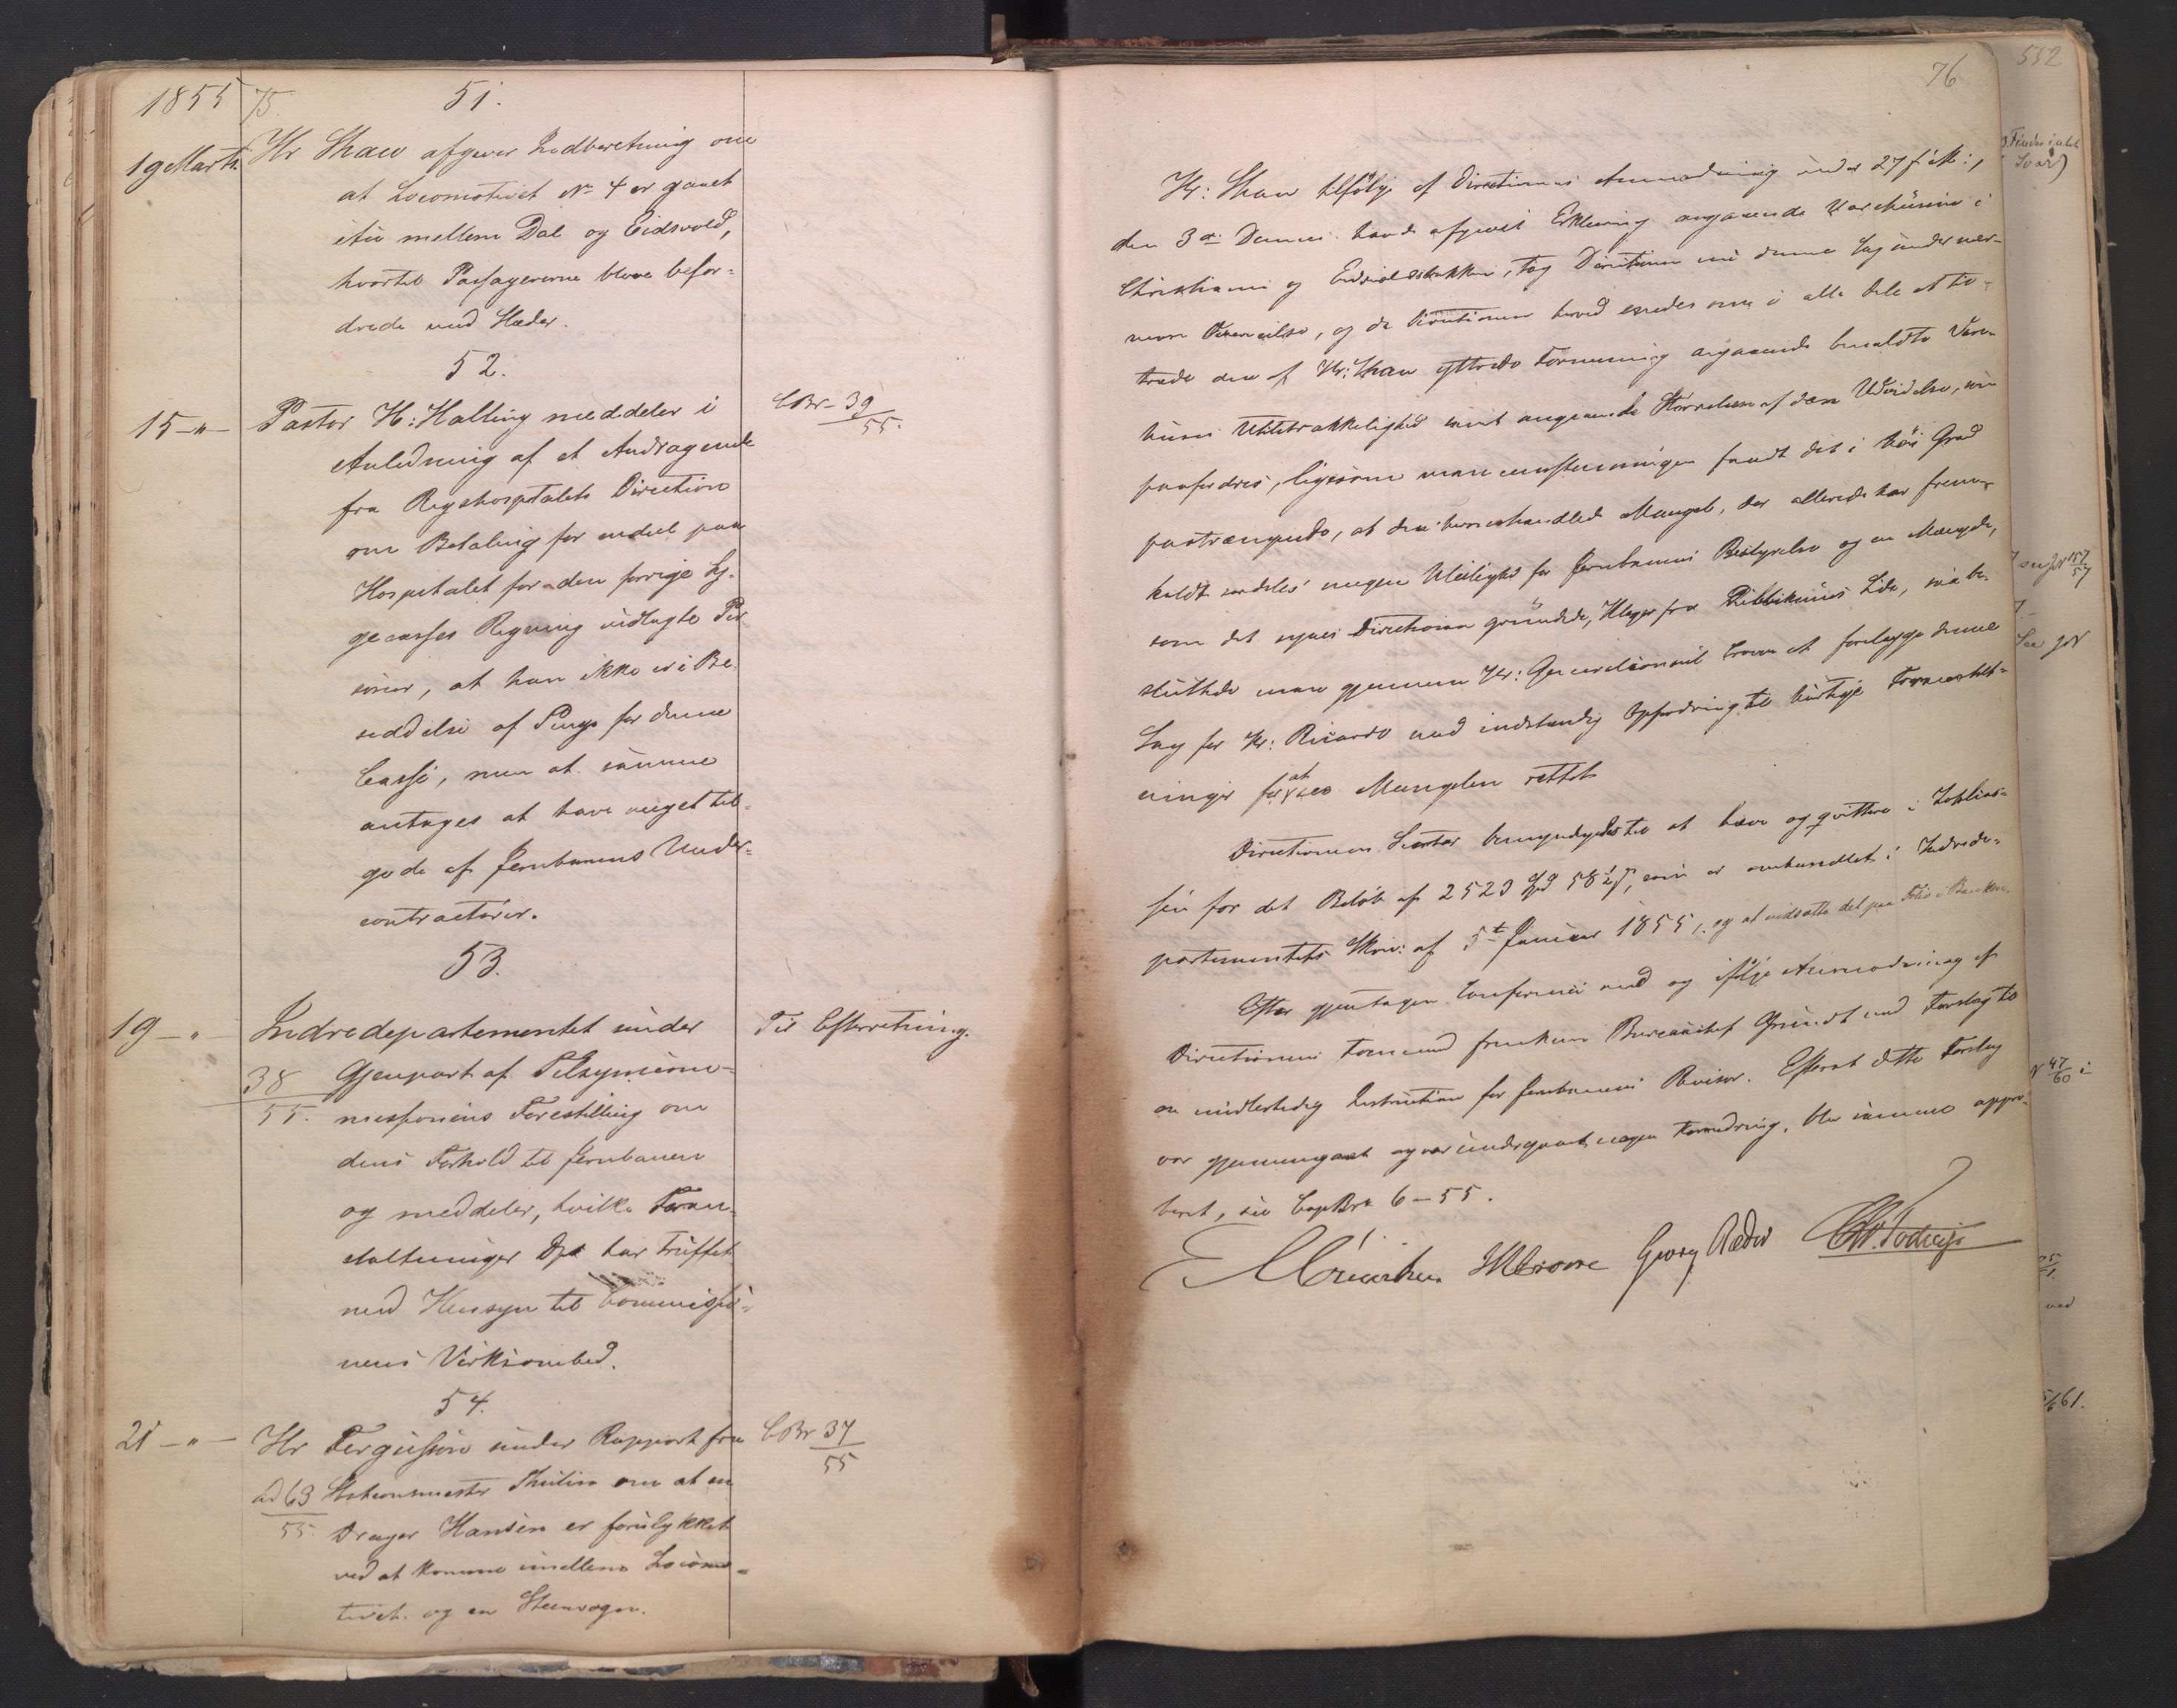 1855 75. 51.
19 Marts. Hr Shaw afgiver Indberetning om
at Locomotivet No 4 er gaaet
itu mellem Dal og Eidsvold,
hvortil Passagererne bleve befor-
drede med Slæder.
52.
15 -"- Pastor H: Halling meddeler i CBr 39/55.
Anledning af et Andragende
fra Rigshospitalets Direction
om Betaling for endeel paa
Hospitalet for den forrige Sy-
gecasses Regning indlagte Per-
soner, at han ikke er i Be-
siddelse af Penge for denne
Casse, men at samme
antages at have noget til-
gode af Jernbanens Under-
contractører.
53.
19 -"- Indredepartementet under Til Efterretning.
38/55. Gjenpart af Tilsynscom-
missionens Forestilling om
dens Forhold til Jernbanen
og meddeler, hvilke Foran-
staltninger Dpt har truffet
med Hensyn til Commissio-
nens Virksomhed.
54.
21 -"- Hr Fergusson under Rapport fra CBr 37/55
ad 63/55. Stationsmester om at en
Drager Hansen er forulykket
ved at komme imellem Locomo-
tivet og en Steenvogn.
76
Hr: Shaw tilfølge af Directionens Anmodning under 27 f: M:,
den 3die Dennes havde afgivet Erklæring angaaende Varehusene i
Christiania og Eidsvoldsbakken, tog Directionen nu denne Sag under nær-
mere Overveielse, og da Directionen herved enedes om i alle Dele at til-
træde den af Hr: Shaw yttrede Formening angaaende bemeldte Vare-
huses Utilstrækkelighed samt angaaende Størrelsen af den Udvidelse, som
paafordres, ligesom man eenstemmigen fandt det i høi Grad
paatrængende, at den omhandlede Mangel, der allerede har frem-
kaldt særdeles megen Uleilighed for Jernbanens Bestyrelse og en Mængde,
som det synes Directionen grundede, Klager fra Publikums Side, saa be-
sluttede man gjennem Hr: Generalconsul Crowe at forelægge denne
Sag for Hr: Ricardo med indstændig Opfordring til hurtige Foranstalt-
ninger for at see Mangelen rettet.
Directionens Secretær bemyndigedes til at hæve og qvittere i Zahlcas-
sen for det Beløb af 2523 Spd 58½ ß, som er omhandlet i Indrede-
partementets Skriv: af 5te Januar 1855, og at indsætte det paa Folio i Banken.
Efter gjentagen Conference med og ifølge Anmodning af
Directionens Formand fremkom Bureauchef Grundt med Forslag til
en midlertidig Instruction for Jernbanens Revisor. Efterat dette Forslag
var gjennemgaaet og var undergaaet nogen Forandring, blev samme appro-
beret, see CopiBr 6-55.
JRCrowe Georg Ræder
552
Findes intet
Svar)
157/57
See JN
N 47/60 i
ved
61.